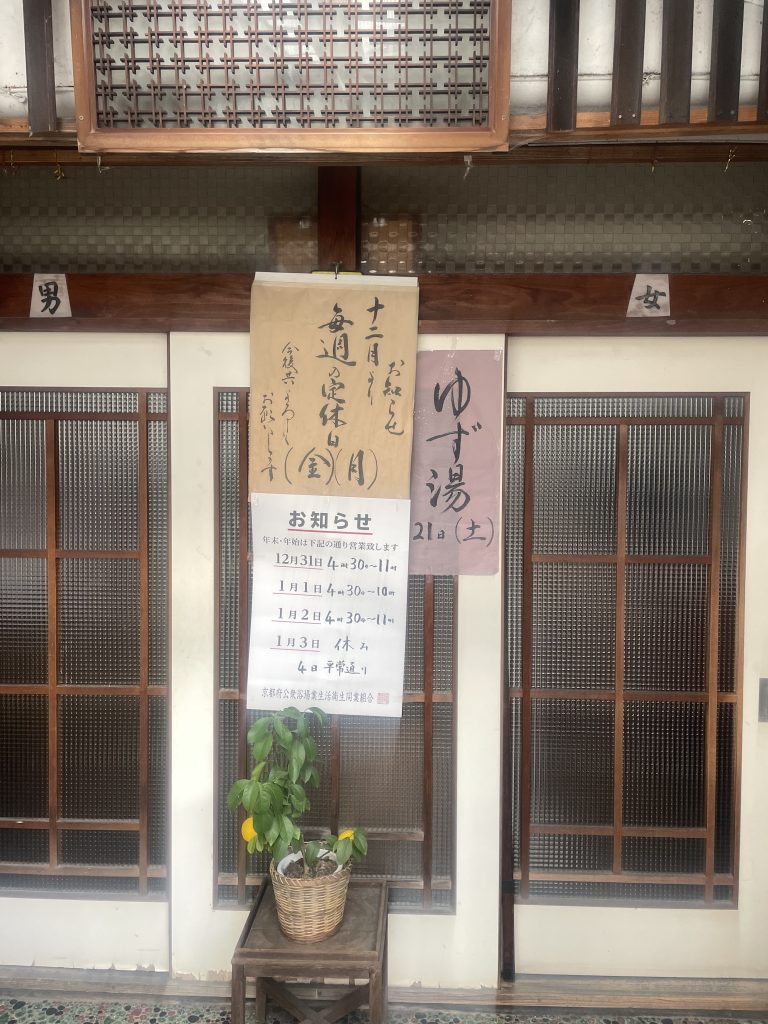 男
女
お知らせ
十二月より
毎週の定休日
(月)
(金)
今後共よろしく
お願いします
ゆず湯
21日(土)
お知らせ
年末・年始は下記の通り営業致します
12月31日 4時30分〜11時
1月1日 4時30分〜10時
1月2日 4時30分〜11時
1月3日 休み
4日 平常通り
京都府公衆浴場業生活衛生同業組合